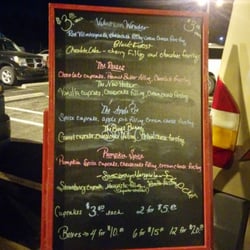 Valentine's Wonder
Red Velvet cupcake, cheesecake filling, cream cheese frosting
Black Forest
Chocolate Cake - cherry filling and chocolate frosting
The Reese
Chocolate cupcake, Peanut Butter filling, Chocolate frosting
The New Yorker
Vanilla cupcake, Cheesecake filling, Cream cheese frosting
The Apple Pie
Spice cupcake, apple pie filling, cream cheese frosting
The Bugs Bunny
Carrot cupcake, cheesecake filling, cream cheese frosting
Pumpkin Spice
Pumpkin Spice cupcake, Cheesecake filling, cream cheese frosting
Strawberry cupcake, cheesecake filling,
Cupcakes $3.00 each 2 for $5.00
Boxes → 4 for $10.00 6 for $15.00 12 for $20.00